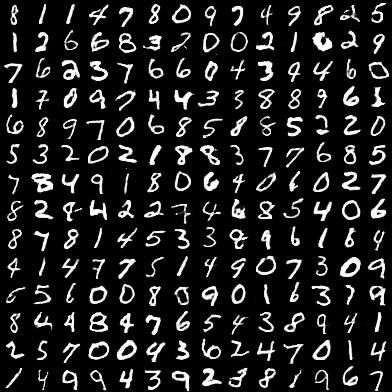 8 1 1 4 7 8 0 9 7 4 9 8 2 5
1 2 6 6 8 3 2 0 0 2 1 6 2 9
7 6 2 3 7 6 6 0 4 3 4 4 6 0
1 7 0 9 7 4 4 3 3 8 8 9 6 5
6 8 9 7 0 6 8 5 8 8 5 2 2 0
5 3 2 0 2 1 8 8 3 7 7 6 8 5
7 8 4 9 1 8 0 6 4 0 6 0 2 7
8 2 8 4 2 2 7 4 6 8 5 4 0 6
8 7 8 1 4 5 3 3 8 9 6 1 6 4
4 1 4 7 7 5 1 4 9 0 7 3 0 9
5 5 6 0 0 8 0 9 0 1 6 3 7 9
8 4 4 8 4 7 6 5 4 3 8 9 4 1
2 5 7 0 0 4 3 6 2 4 7 0 1 4
1 4 9 9 4 3 9 2 3 8 1 9 6 7